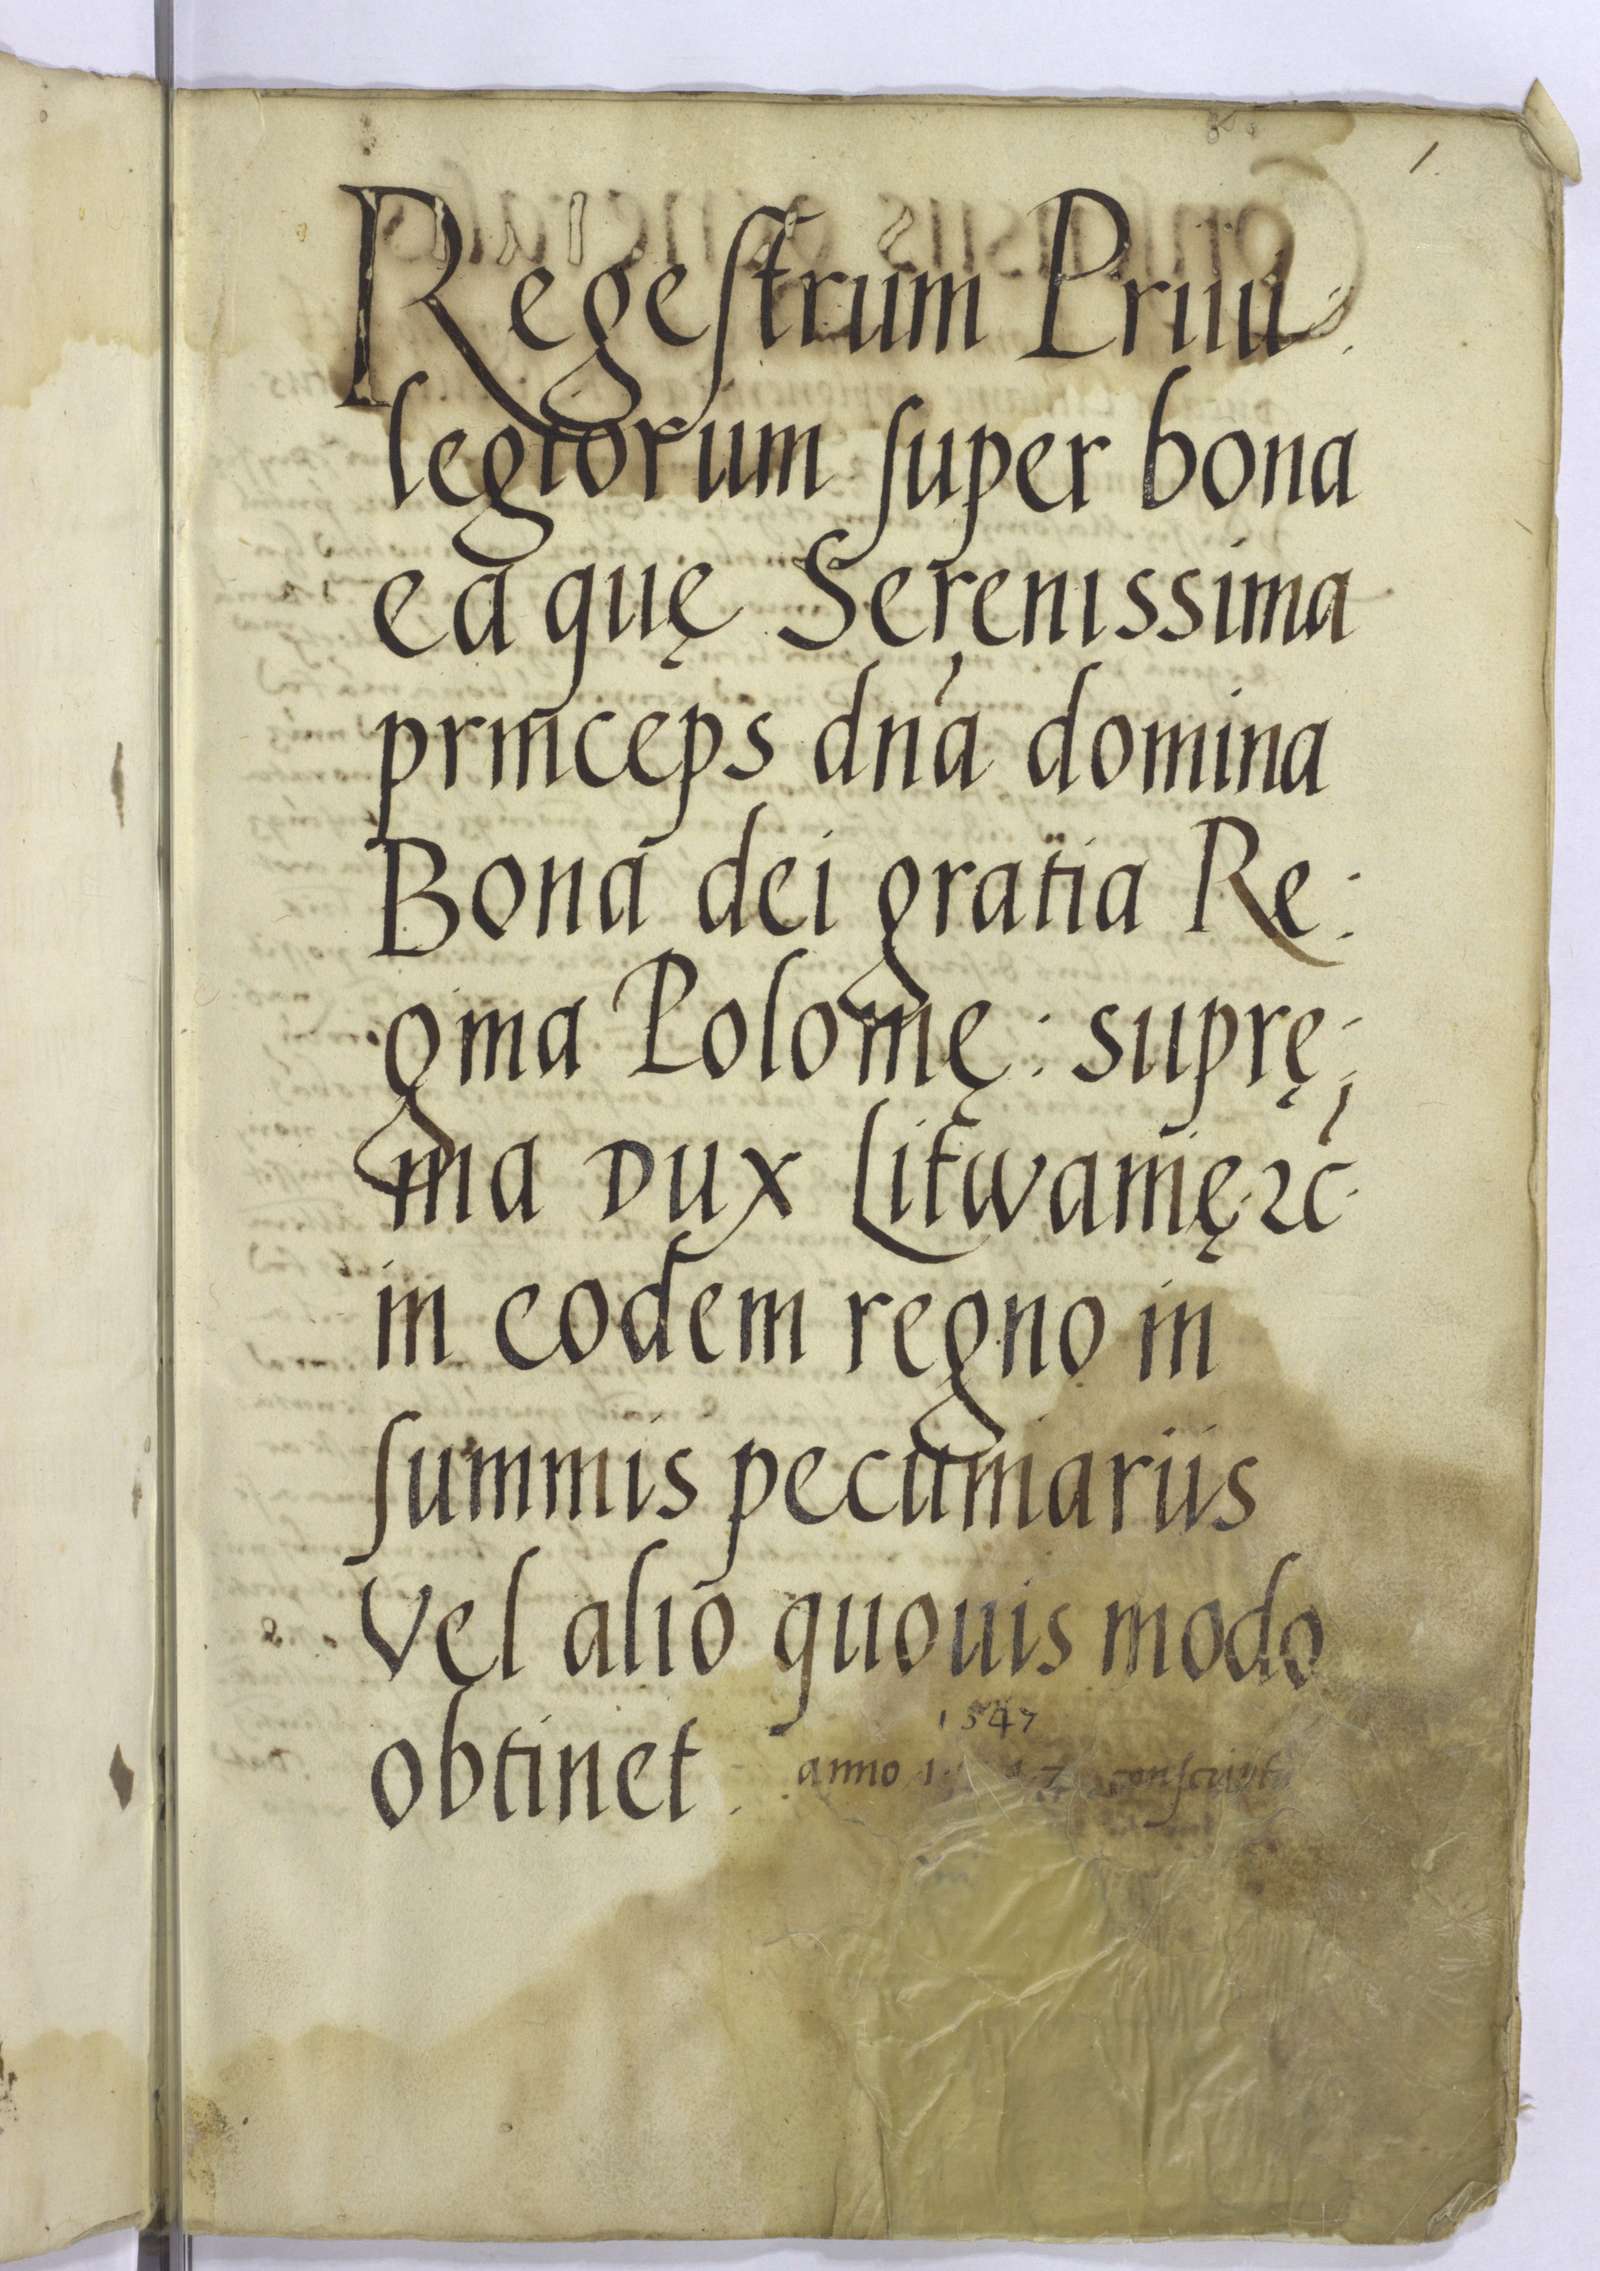 1.
Regestrum Priui
legiorum super bona
ea quę Serenissima
princeps dna domina
Bona dei gratia Re:
gina Polonię: suprę:
ma Dux Litwanię. 2c.
in eodem regno in
summis pecuniariis
vel alio quouis modo
obtinet.
1547
anno 1 7 conscript